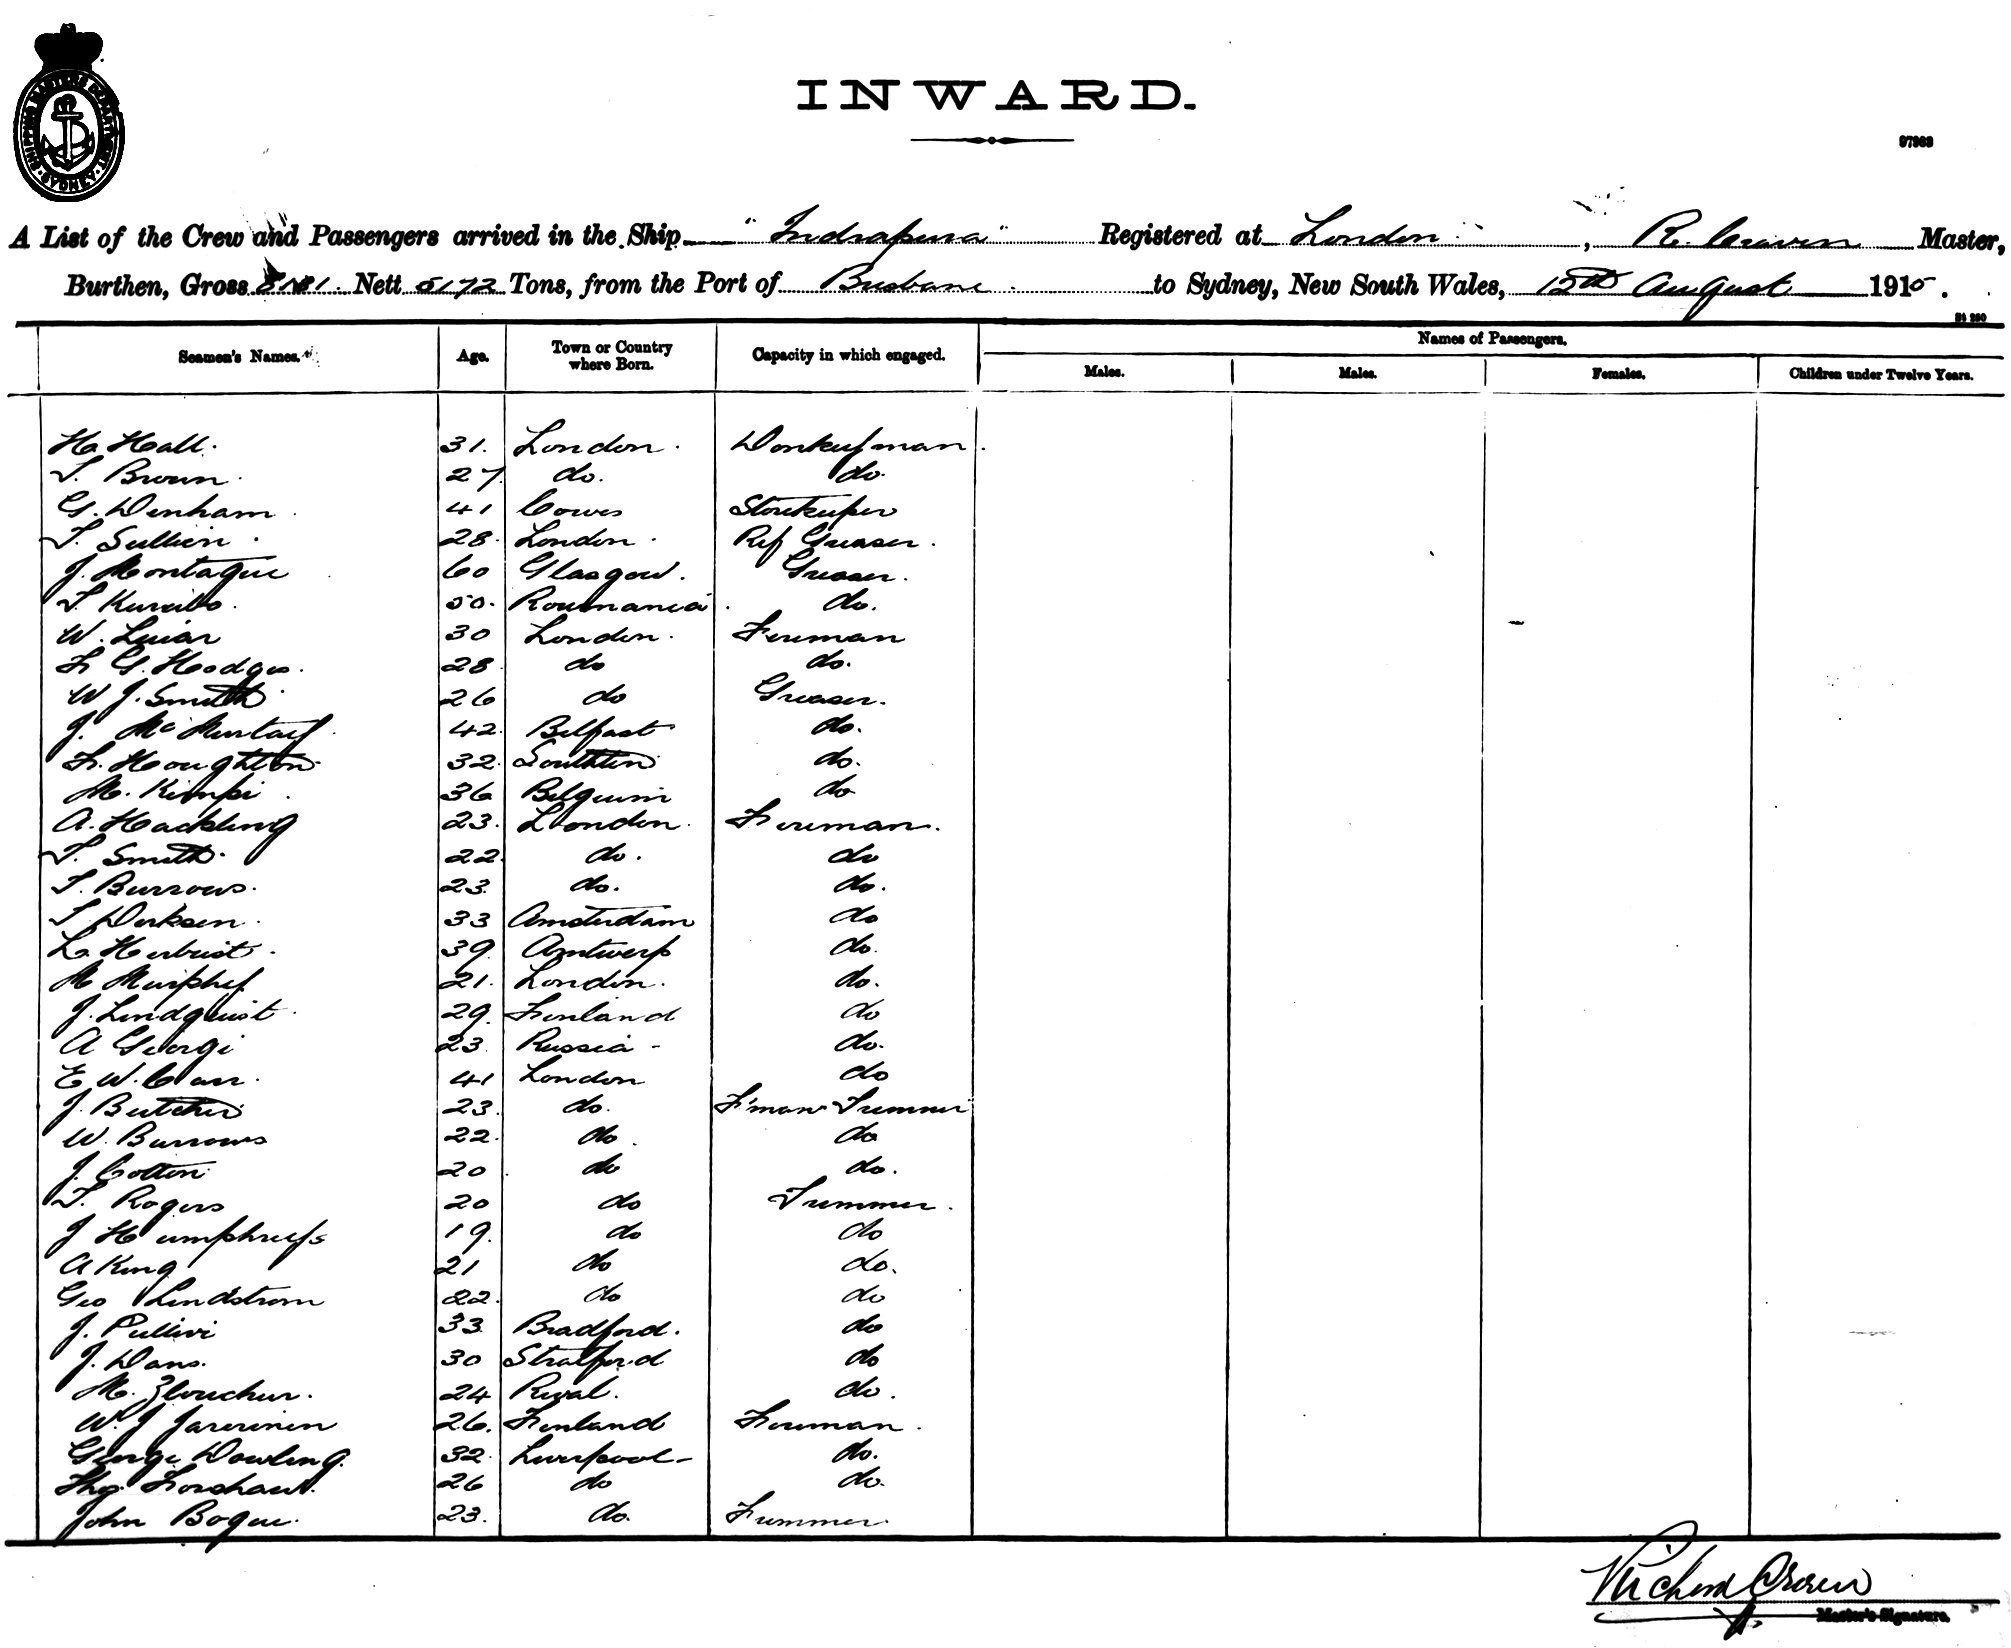 SHIPPING MASTERS DEPARTMENT SYDNEY
INWARD.
97989
A List of the Crew and Passengers arrived in the Ship "Indrapura" Registered at London, R. Craven Master,
Burthen, Gross Nett 5172 Tons, from the Port of Brisbane to Sydney, New South Wales, 12th August 1915.
Names of Passengers.
Seamen's Names. Age. Town or Country where Born. Capacity in which engaged. Males. Males. Females. Children under Twelve Years.
H. Hall. 31. London. Donkeyman.
T. Brown. 27. do. do.
G. Denham. 41 Cowes Storekeeper
T. 28. London. Ref Greaser.
J. Montague 60 Glasgow. Greaser.
T. 50. Roumania. do.
W. 30 London. Fireman
F. G. Hodges. 28. do do.
W J. Smith. 26 do Greaser.
J. McMurtay 42. Belfast do.
F. Houghton. 32. Southton do.
M. Kempi. 36 Belguim do
A. Hackling 23. London. Fireman.
T. Smith. 22. do. do
T. Burrows. 23. do. do.
T. Derksen. 33 Amsterdam do
L. Herbrist. 39. Antwerp do.
M Murphy 21. London. do.
J. Lindquist. 29. Finland do
A Georgi 23. Russia - do.
E W. Carr. 41 London do
J. Butcher 23. do. F'man Trimmer
W. Burrows 22. do. do
J. Cotton 20. do do.
T. Rogers 20 do Trimmer.
J Humphreys 19. do do
A King 21 do do.
Geo Lindstrom 22. do do
J. 33. Bradford. do
J. Dans. 30 Stratford do
M. 24 Reval. do.
W. J 26. Finland Fireman.
George Dowling. 32. Liverpool - do.
Thos Forshaw. 26 do do.
John Bogue. 23. do. Trimmer.
Richard Craven
Master's Signature.